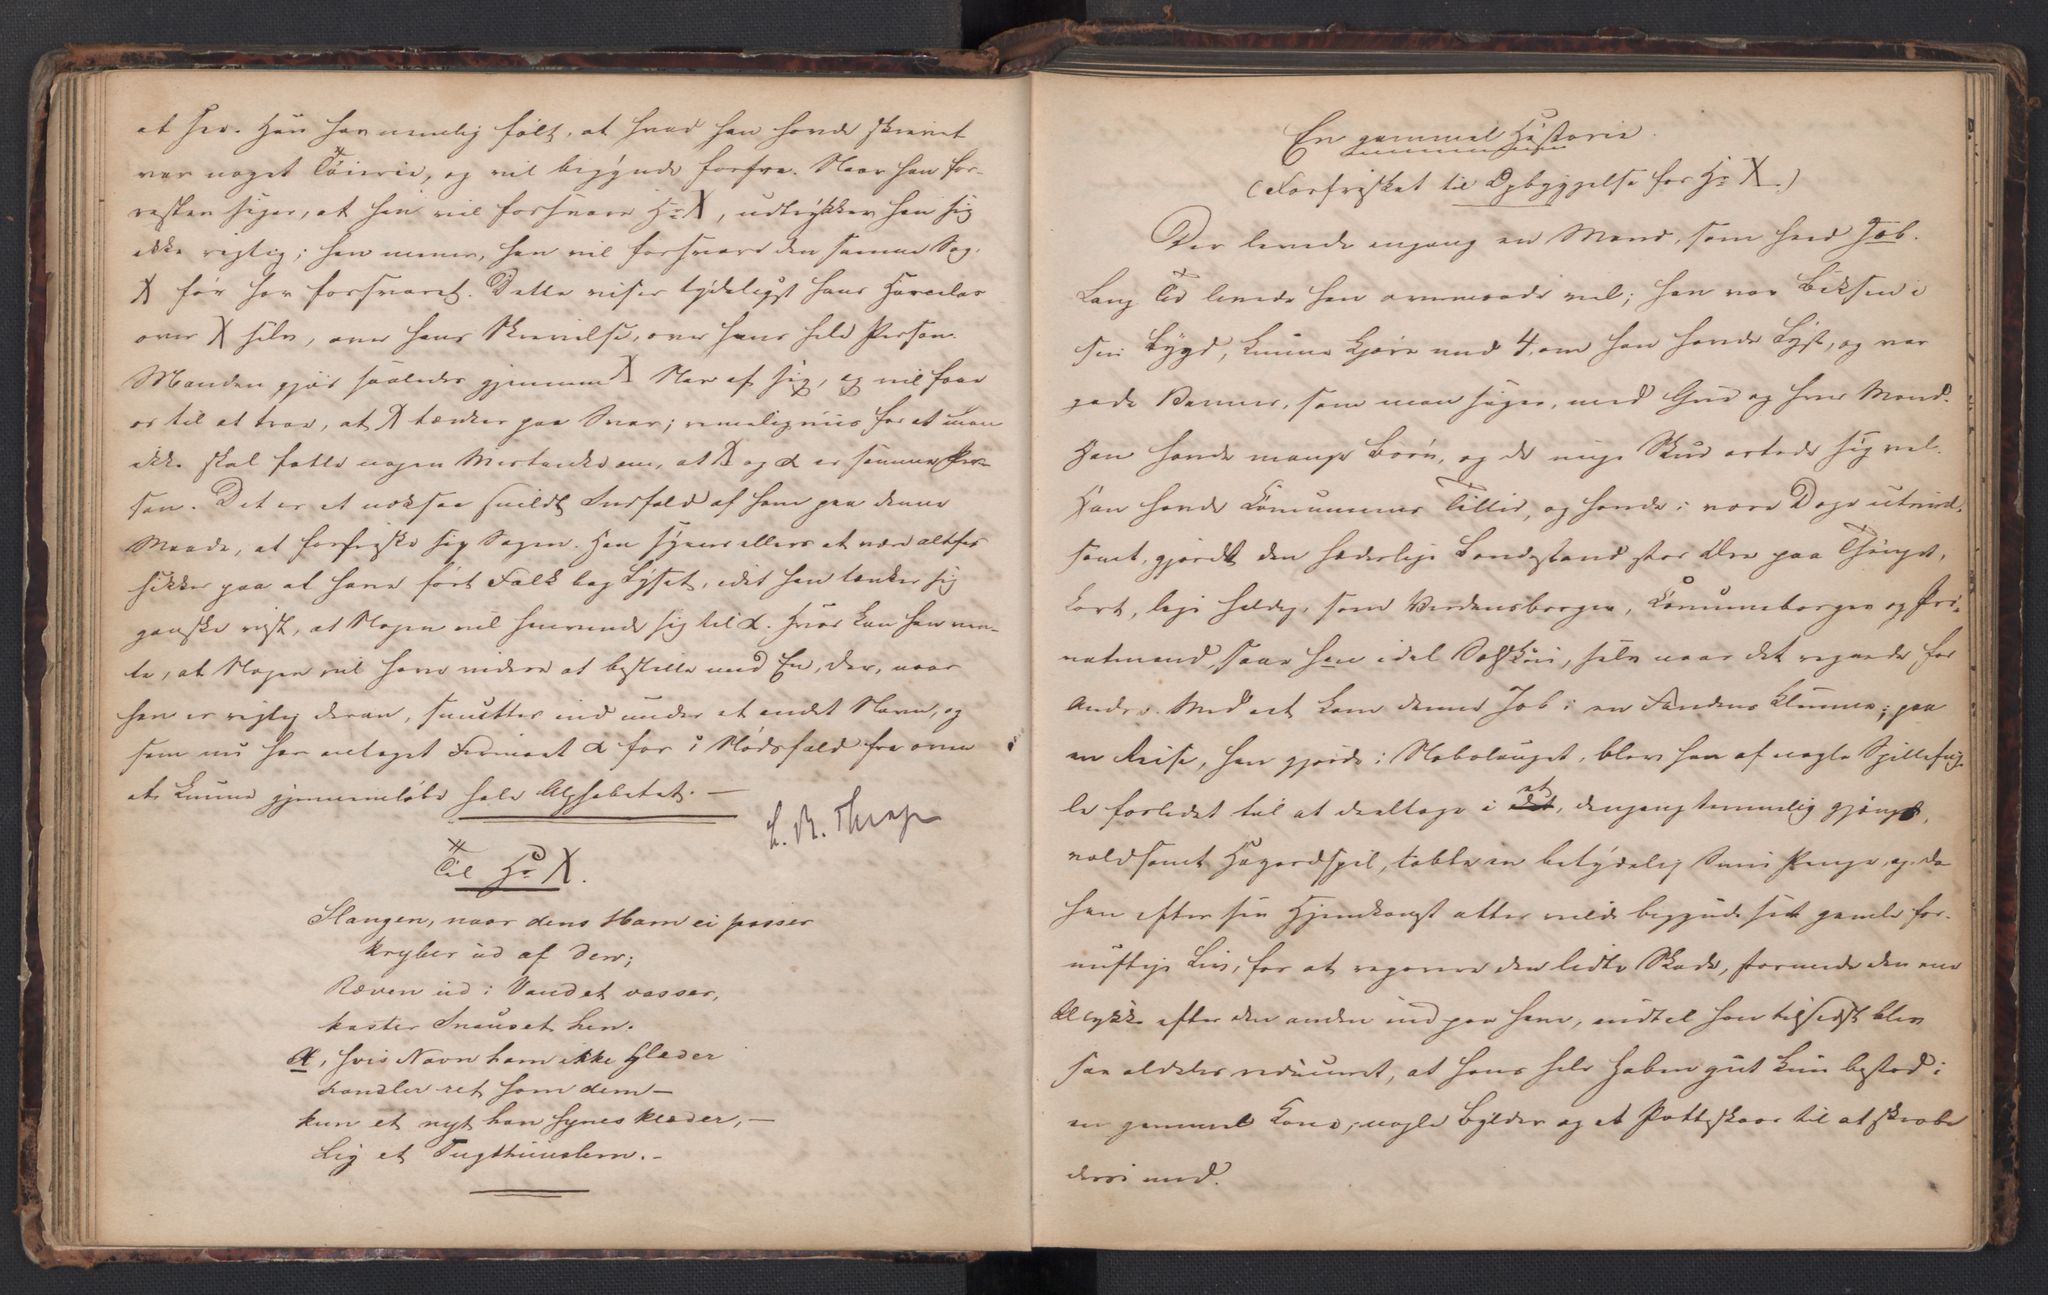 at see. Han har nemlig følt, at hvad han havde skrevet
var noget Tøierie, og vil begynde forfra. Naar han for-
resten siger, at han vil forsvare Hr X, udtrykker han sig
ikke rigtig; han mener, han vil forsvare den samme Sag,
X før har forsvaret. Dette viser tydeligst hans
over X selv, over hans Skrivelse, over hans hele Person.
Manden gjør saaledes gjennem X Nar af sig, og vil faae
os til at troe, at X tænker paa Svar; rimeligviis for at man
ikke skal fatte nogen Mistanke om, at X og α er samme Per-
son. Det er et ikke saa snildt Indfald af ham paa denne
Maade, at forfriske sig Sagen. Han synes ellers at være altfor
sikker paa at have ført Folk bag Lyset, idet han tænker sig
ganske vist, at Nogen vil henvende sig til α. Hvor kan han ven-
te, at Nogen vil have videre at bestille med En, der, naar
han er rigtig deran, smutter ind under et andet Navn, og
som nu har antaget Firmaet α for i Nødsfald fra oven
at kunne gjennemløbe hele Alphabetet. —
L. R. Thrap
Til Hr X.
Slangen, naar dens Ham ei passer
kryber ud af den;
Ræven ud i Vandet vasser,
kaster Snauset hen.
α, hvis Navn ham ikke glæder
handler ret som dem —
kun et nyt han synes klæder, —
Lig et Tugthuuslem. —
En gammel Historie.
(Forfrisket til Opbyggelse for Hr X.)
Der levede engang en Mand, som heed Job.
Lang Tid levede han overmaade vel; han var Buksen i
sin Bygd, kunne kjøre med 4, om han havde Lyst, og var
gode Venner, som man siger, med Gud og hver Mand.
Han havde mange Børn, og de unge Skud artede sig vel.
Han havde Communens Tillid, og havde i vore Dage utvivl-
somt, gjordt den hæderlige Bondestand stor Ære paa Thinget,
kort, lige heldig, som Verdensborger, Communeborger og Pri-
vatmand, saae han idel Solskin, selv naar det regnede for
Andre. Med eet kom denne Job i en Fandens Klemme; paa
en Reise, han gjorde i Nabolauget, blev han af nogle Spillefug-
le forledet til at deeltage i et, dengang temmelig gjængs,
voldsomt Hazardspil, tabte en betydelig Sum Penge, og da
han efter sin Hjemkomst atter vilde begynde sit gamle for-
nuftige Liv, for at reparere den lidte Skade, stormede den ene
Ulykke efter den anden ind paa ham, indtil han tilsidst blev
saa aldeles ruineret, at hans hele Habengut kun bestod i
en gammel Kone, nogle Bylder og et Potteskaar til at skrabe
dem med.